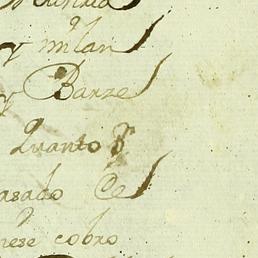 y milan
y Barze
Quanto
asado Ce
nese cobro